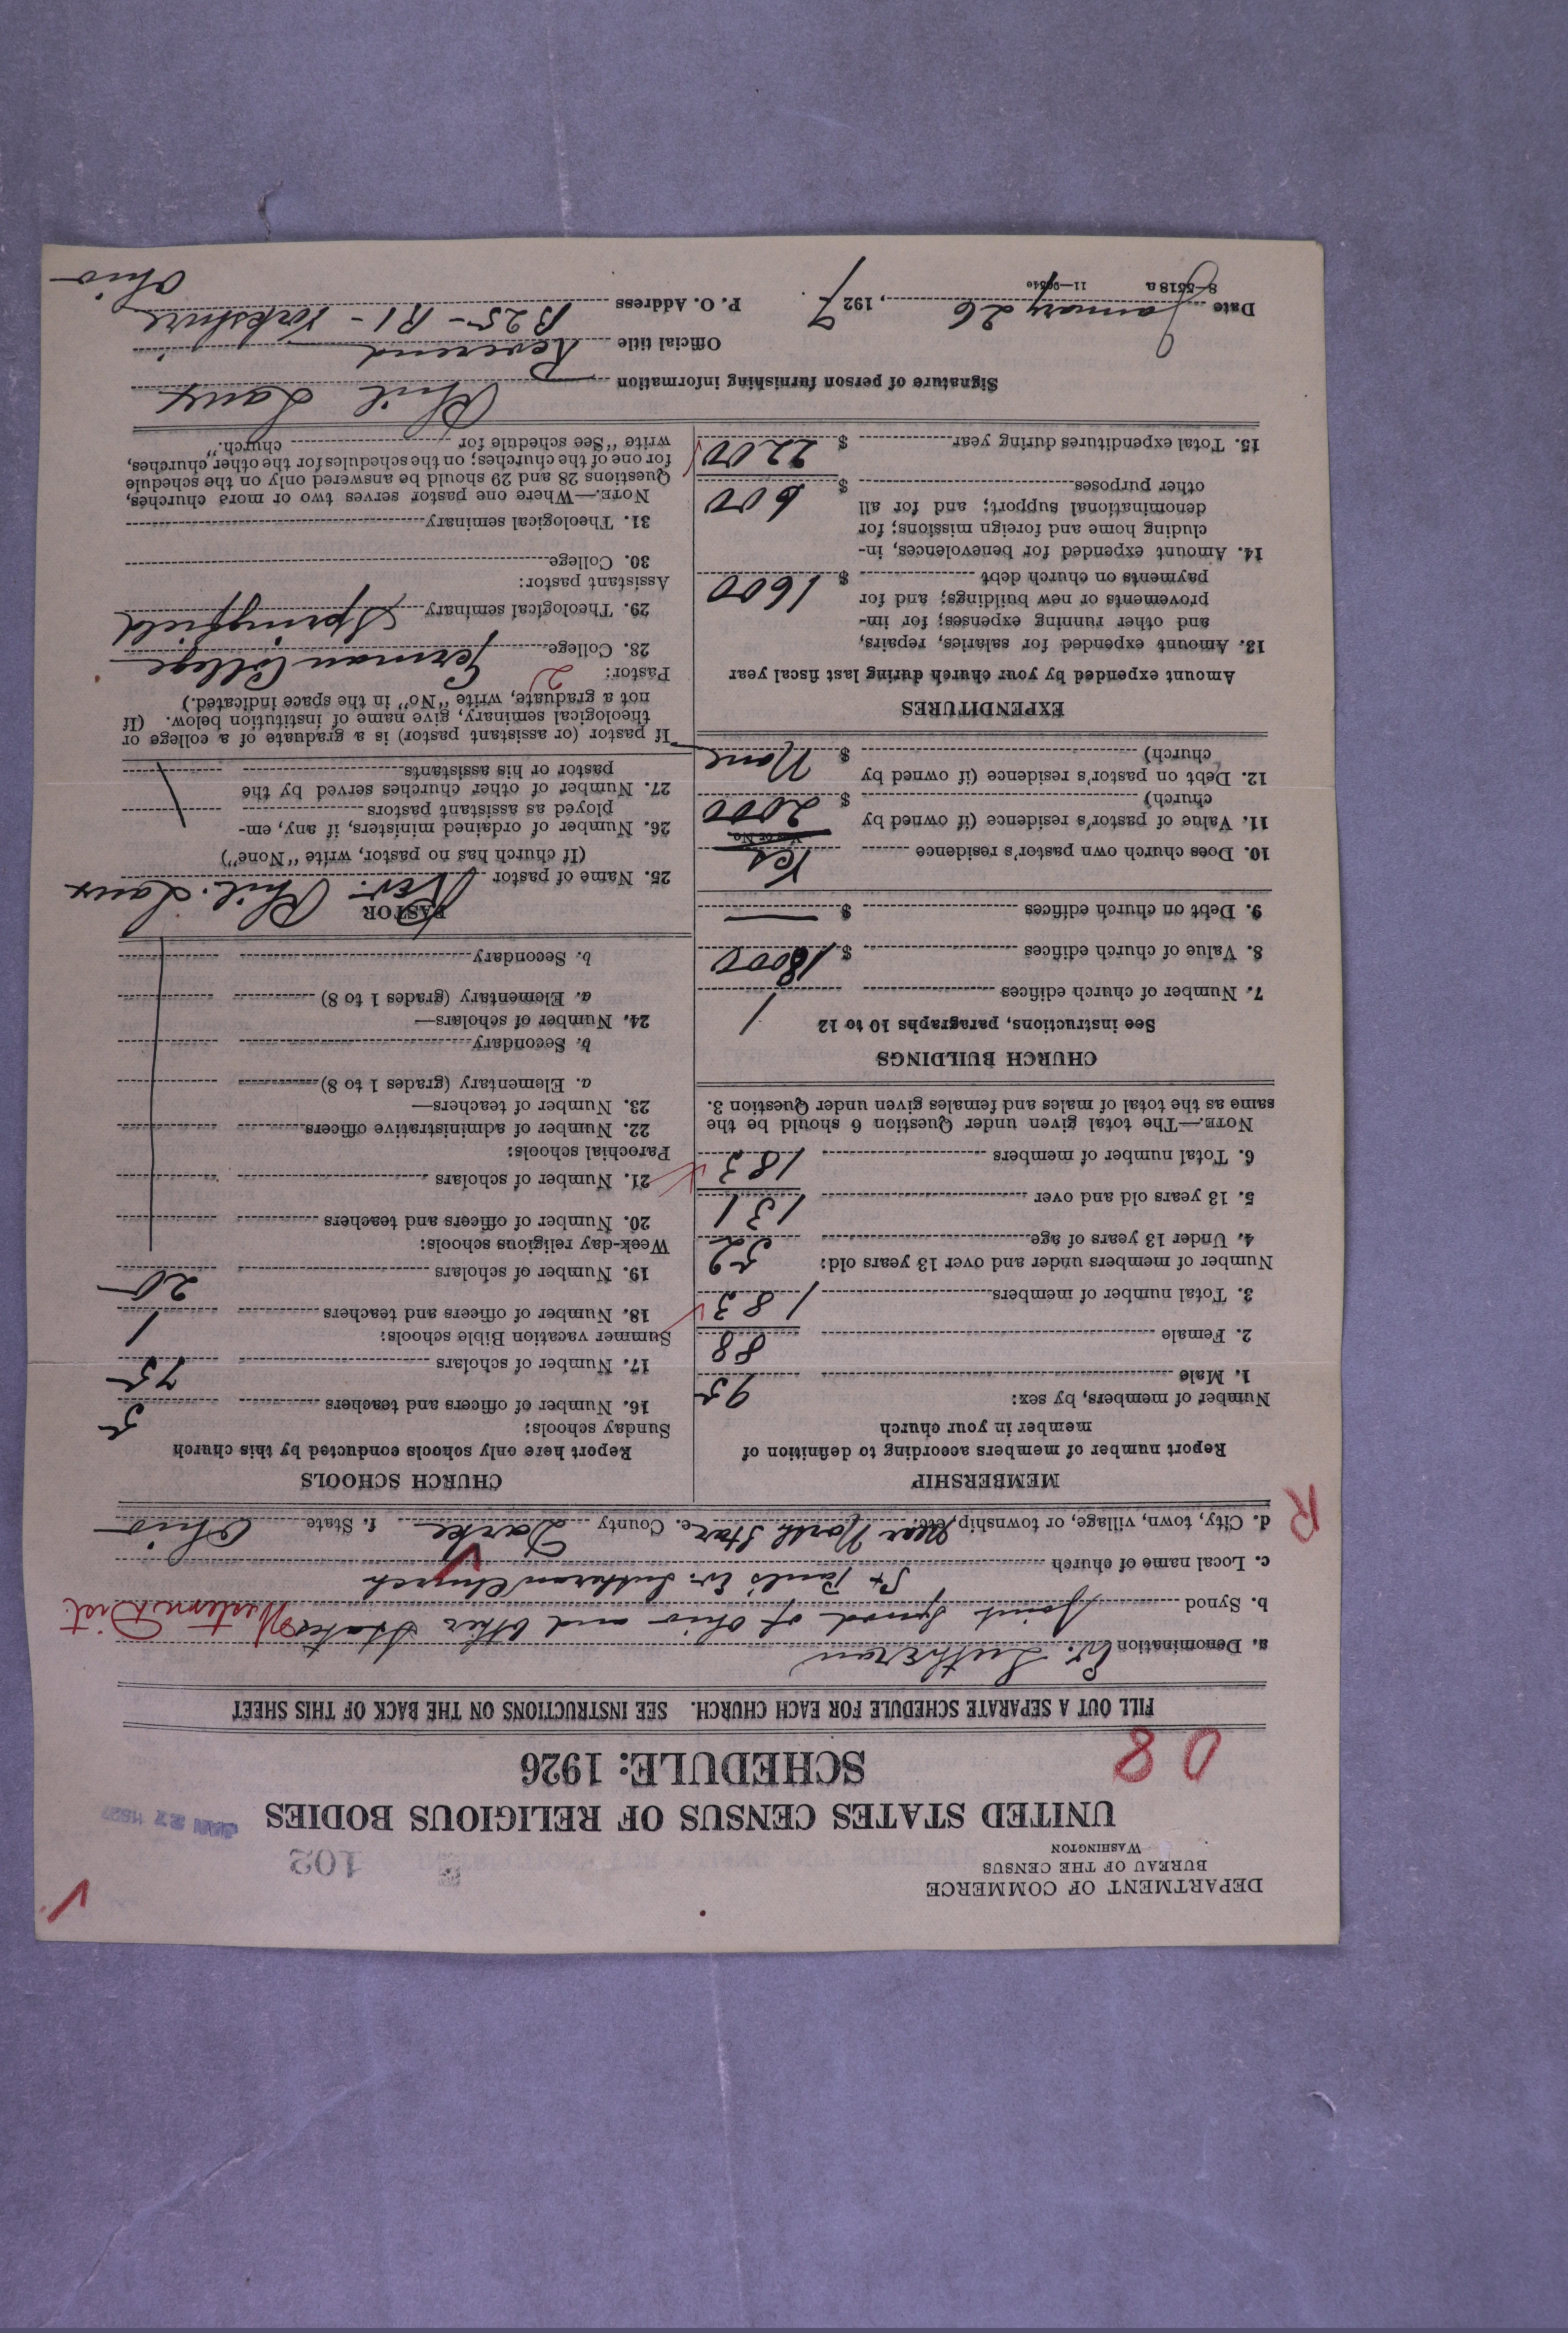 DEPARTMENT OF COMMERCE
BUREAU OF THE CENSUS
WASHINGTON
102
UNITED STATES CENSUS OF RELIGIOUS BODIES
JAN 27 1927
SCHEDULE: 1926
08
FILL OUT A SEPARATE SCHEDULE FOR EACH CHURCH. SEE INSTRUCTIONS ON THE BACK OF THIS SHEET
a. Denomination Ev. Lutheran
b. Synod Joint Synod of Ohio and Other States Western Dist.
c. Local name of church St Paul's Ev. Lutheran Church
R
d. City, town, village, or township, etc. Near North Star e. County Darke f. State Ohio
MEMBERSHIP
Report number of members according to definition of
member in your church
Number of members, by sex:
1. Male 95
2. Female 88
3. Total number of members 183
Number of members under and over 13 years old:
4. Under 13 years of age 52
5. 13 years old and over 131
6. Total number of members 183
NOTE.—The total given under Question 6 should be the
same as the total of males and females given under Question 3.
CHURCH BUILDINGS
See instructions, paragraphs 10 to 12
7. Number of church edifices 1
8. Value of church edifices $ 18000
9. Debt on church edifices $ —
10. Does church own pastor's residence Yes
Yes or No
11. Value of pastor's residence (if owned by
church) $ 2000
12. Debt on pastor's residence (if owned by
church) $ None
EXPENDITURES
Amount expended by your church during last fiscal year
13. Amount expended for salaries, repairs,
and other running expenses; for im-
provements or new buildings; and for
payments on church debt $ 1600
14. Amount expended for benevolences, in-
cluding home and foreign missions; for
denominational support; and for all
other purposes $ 600
15. Total expenditures during year $ 2200
CHURCH SCHOOLS
Report here only schools conducted by this church
Sunday schools:
16. Number of officers and teachers 5
17. Number of scholars 75
Summer vacation Bible schools:
18. Number of officers and teachers 1
19. Number of scholars 20
Week-day religious schools:
20. Number of officers and teachers
21. Number of scholars
Parochial schools:
22. Number of administrative officers
23. Number of teachers—
a. Elementary (grades 1 to 8)
b. Secondary
24. Number of scholars—
a. Elementary (grades 1 to 8)
b. Secondary
PASTOR
25. Name of pastor Rev. Phil. Laux
(If church has no pastor, write "None")
26. Number of ordained ministers, if any, em-
ployed as assistant pastors
27. Number of other churches served by the
pastor or his assistants
If pastor (or assistant pastor) is a graduate of a college or
theological seminary, give name of institution below. (If
not a graduate, write "No" in the space indicated.)
Pastor: 2
28. College German College
29. Theological seminary Springfield
Assistant pastor:
30. College
31. Theological seminary
NOTE.—Where one pastor serves two or more churches,
Questions 28 and 29 should be answered only on the schedule
for one of the churches; on the schedules for the other churches,
write "See schedule for church."
Signature of person furnishing information Phil Laux
Official title Reverend
Date January 26, 1927. P. O. Address B25 - R1 - Yorkshire
Ohio
8—5518a 11—96540